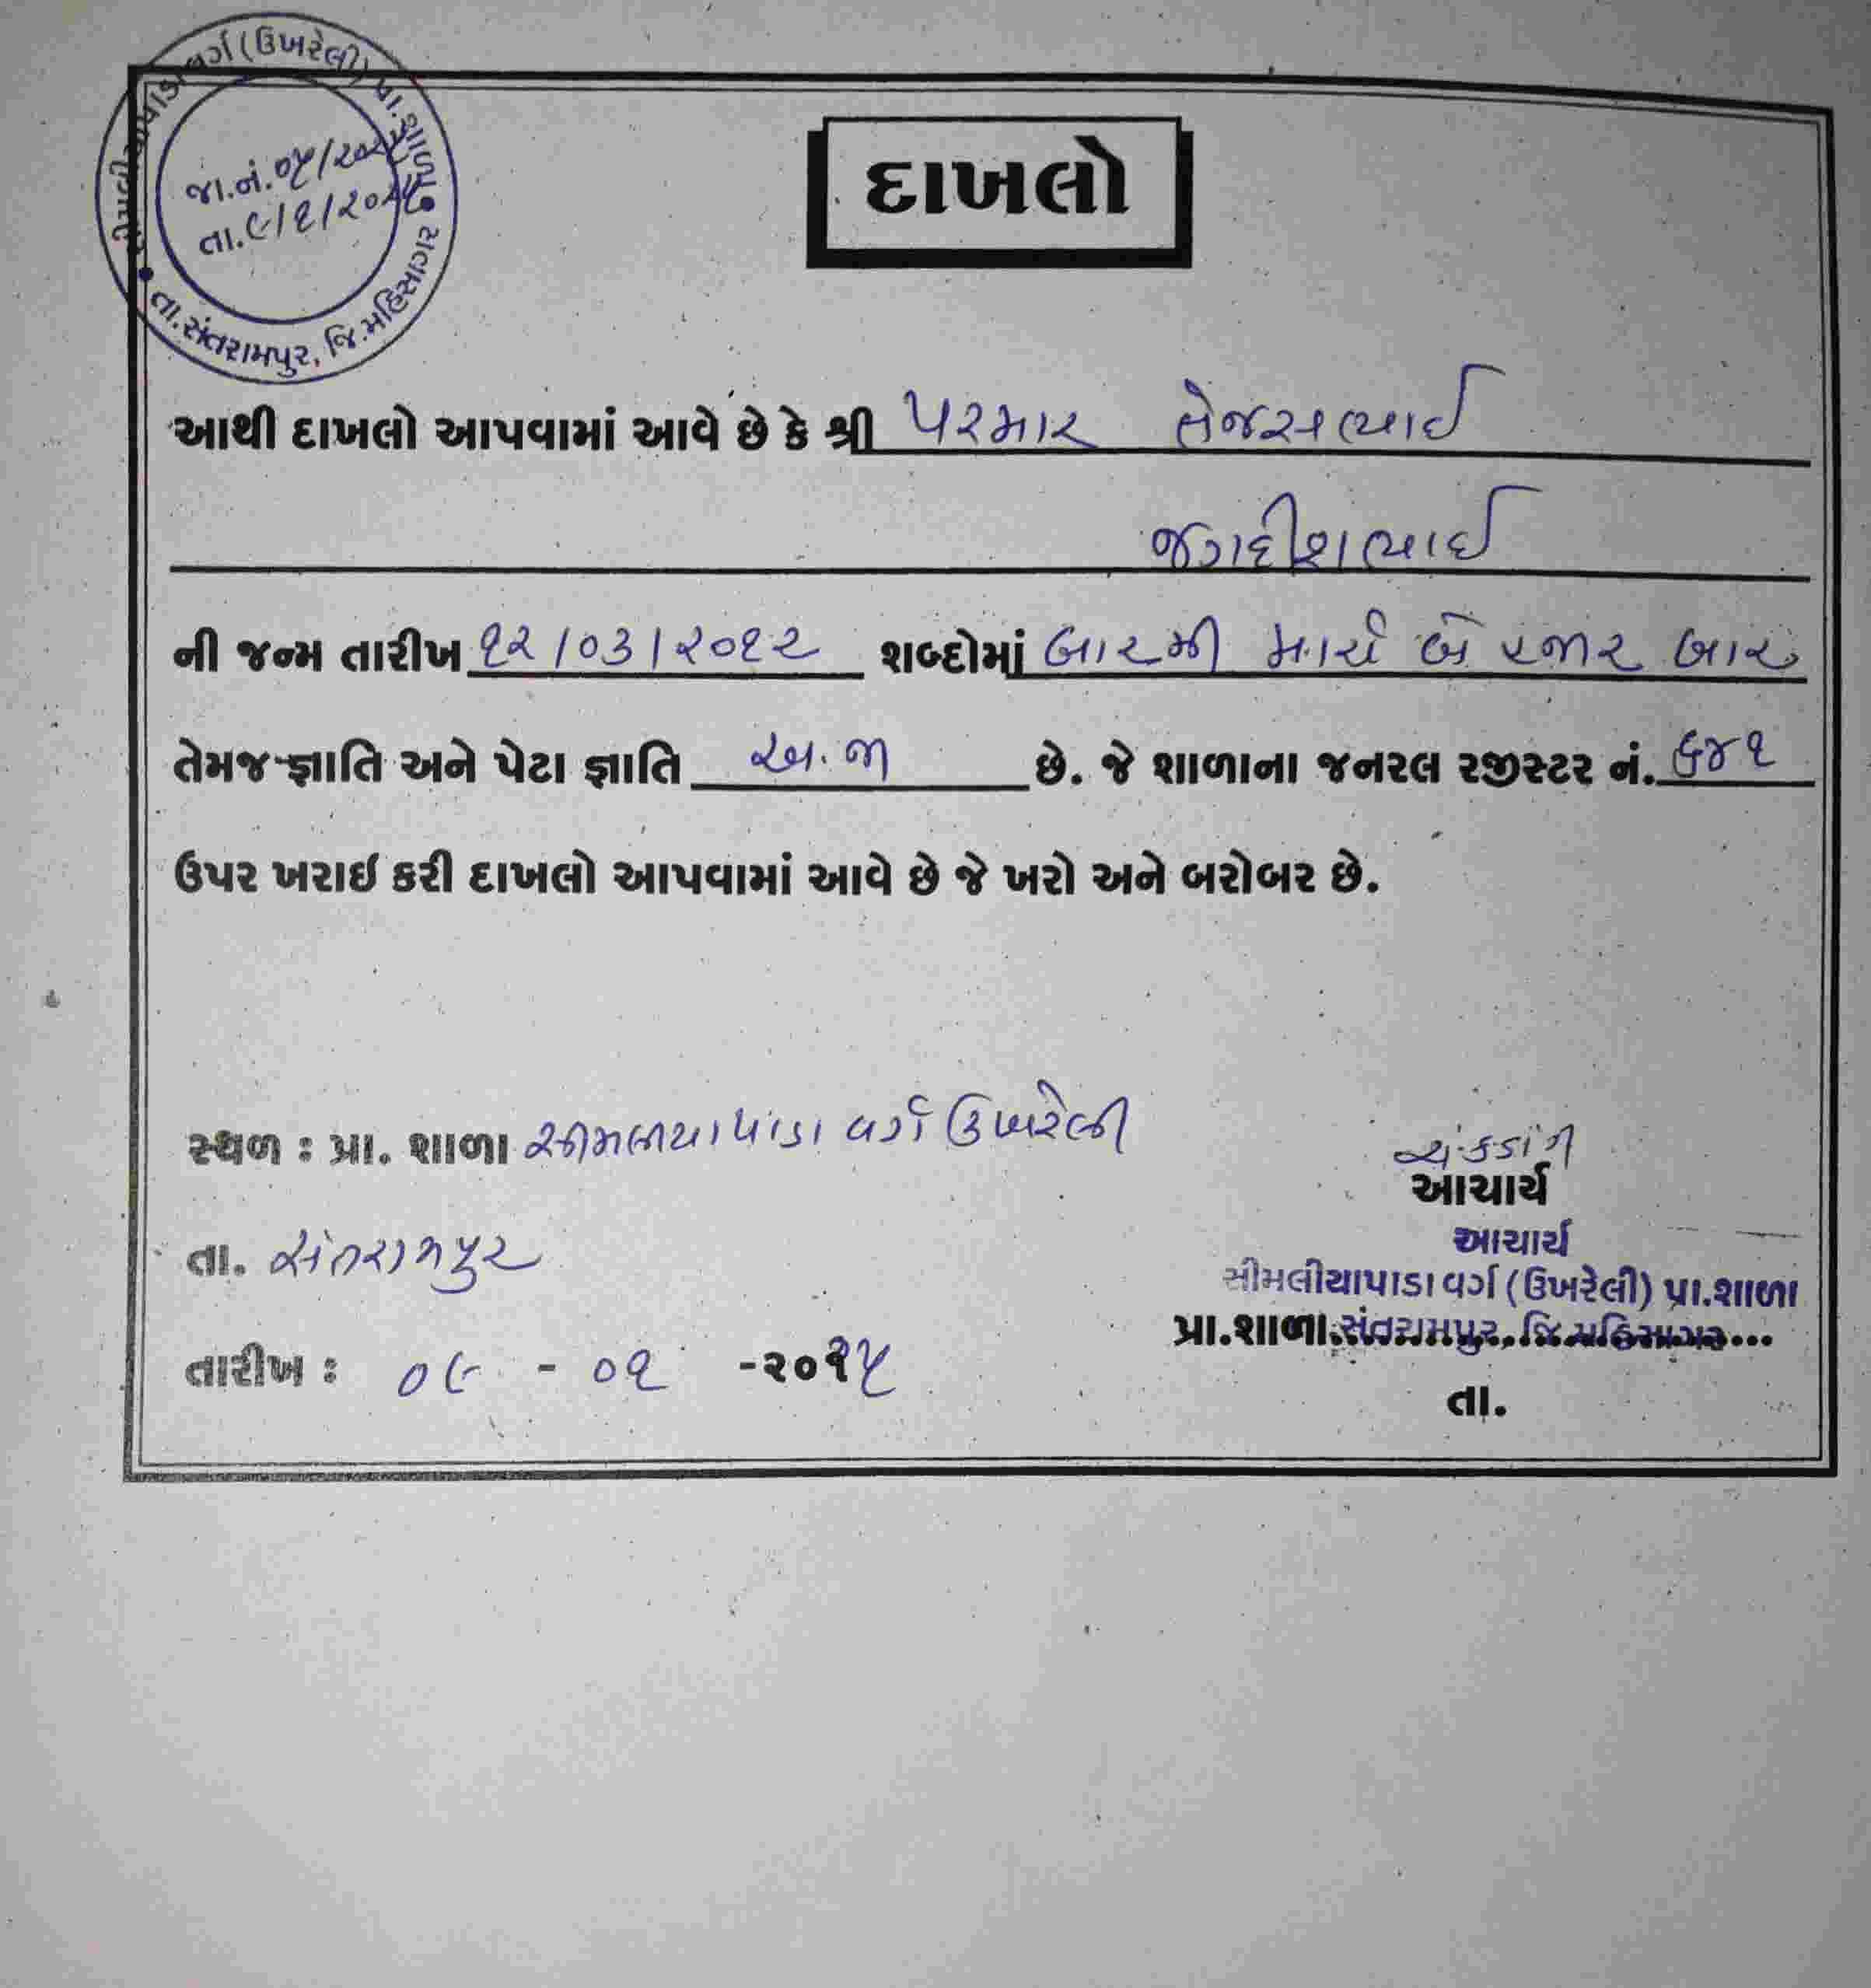 સીમલીયાપાડા વર્ગ (ઉખરેલી) પ્રા.શાળા
જા.નં.૦૫/૨૦૨૫
તા.૯/૧/૨૦૨૫
તા.સંતરામપુર, જિ.મહિસાગર
દાખલો
આથી દાખલો આપવામાં આવે છે કે શ્રી પરમાર તેજસભાઈ
જગદીશભાઈ
ની જન્મ તારીખ ૧૨/૦૩/૨૦૧૨ શબ્દોમાં બારમી માર્ચ બે હજાર બાર
તેમજ જ્ઞાતિ અને પેટા જ્ઞાતિ અ.જા છે. જે શાળાના જનરલ રજીસ્ટર નં. ૬૪૧
ઉપર ખરાઇ કરી દાખલો આપવામાં આવે છે જે ખરો અને બરોબર છે.
સ્થળ : પ્રા. શાળા સીમલીયાપાડા વર્ગ ઉખરેલી
આચાર્ય
તા. સંતરામપુર
આચાર્ય
સીમલીયાપાડા વર્ગ (ઉખરેલી) પ્રા.શાળા
પ્રા.શાળા સંતરામપુર, જિ.મહિસાગર
તારીખ : ૦૯ - ૦૧ -૨૦૨૫
તા.